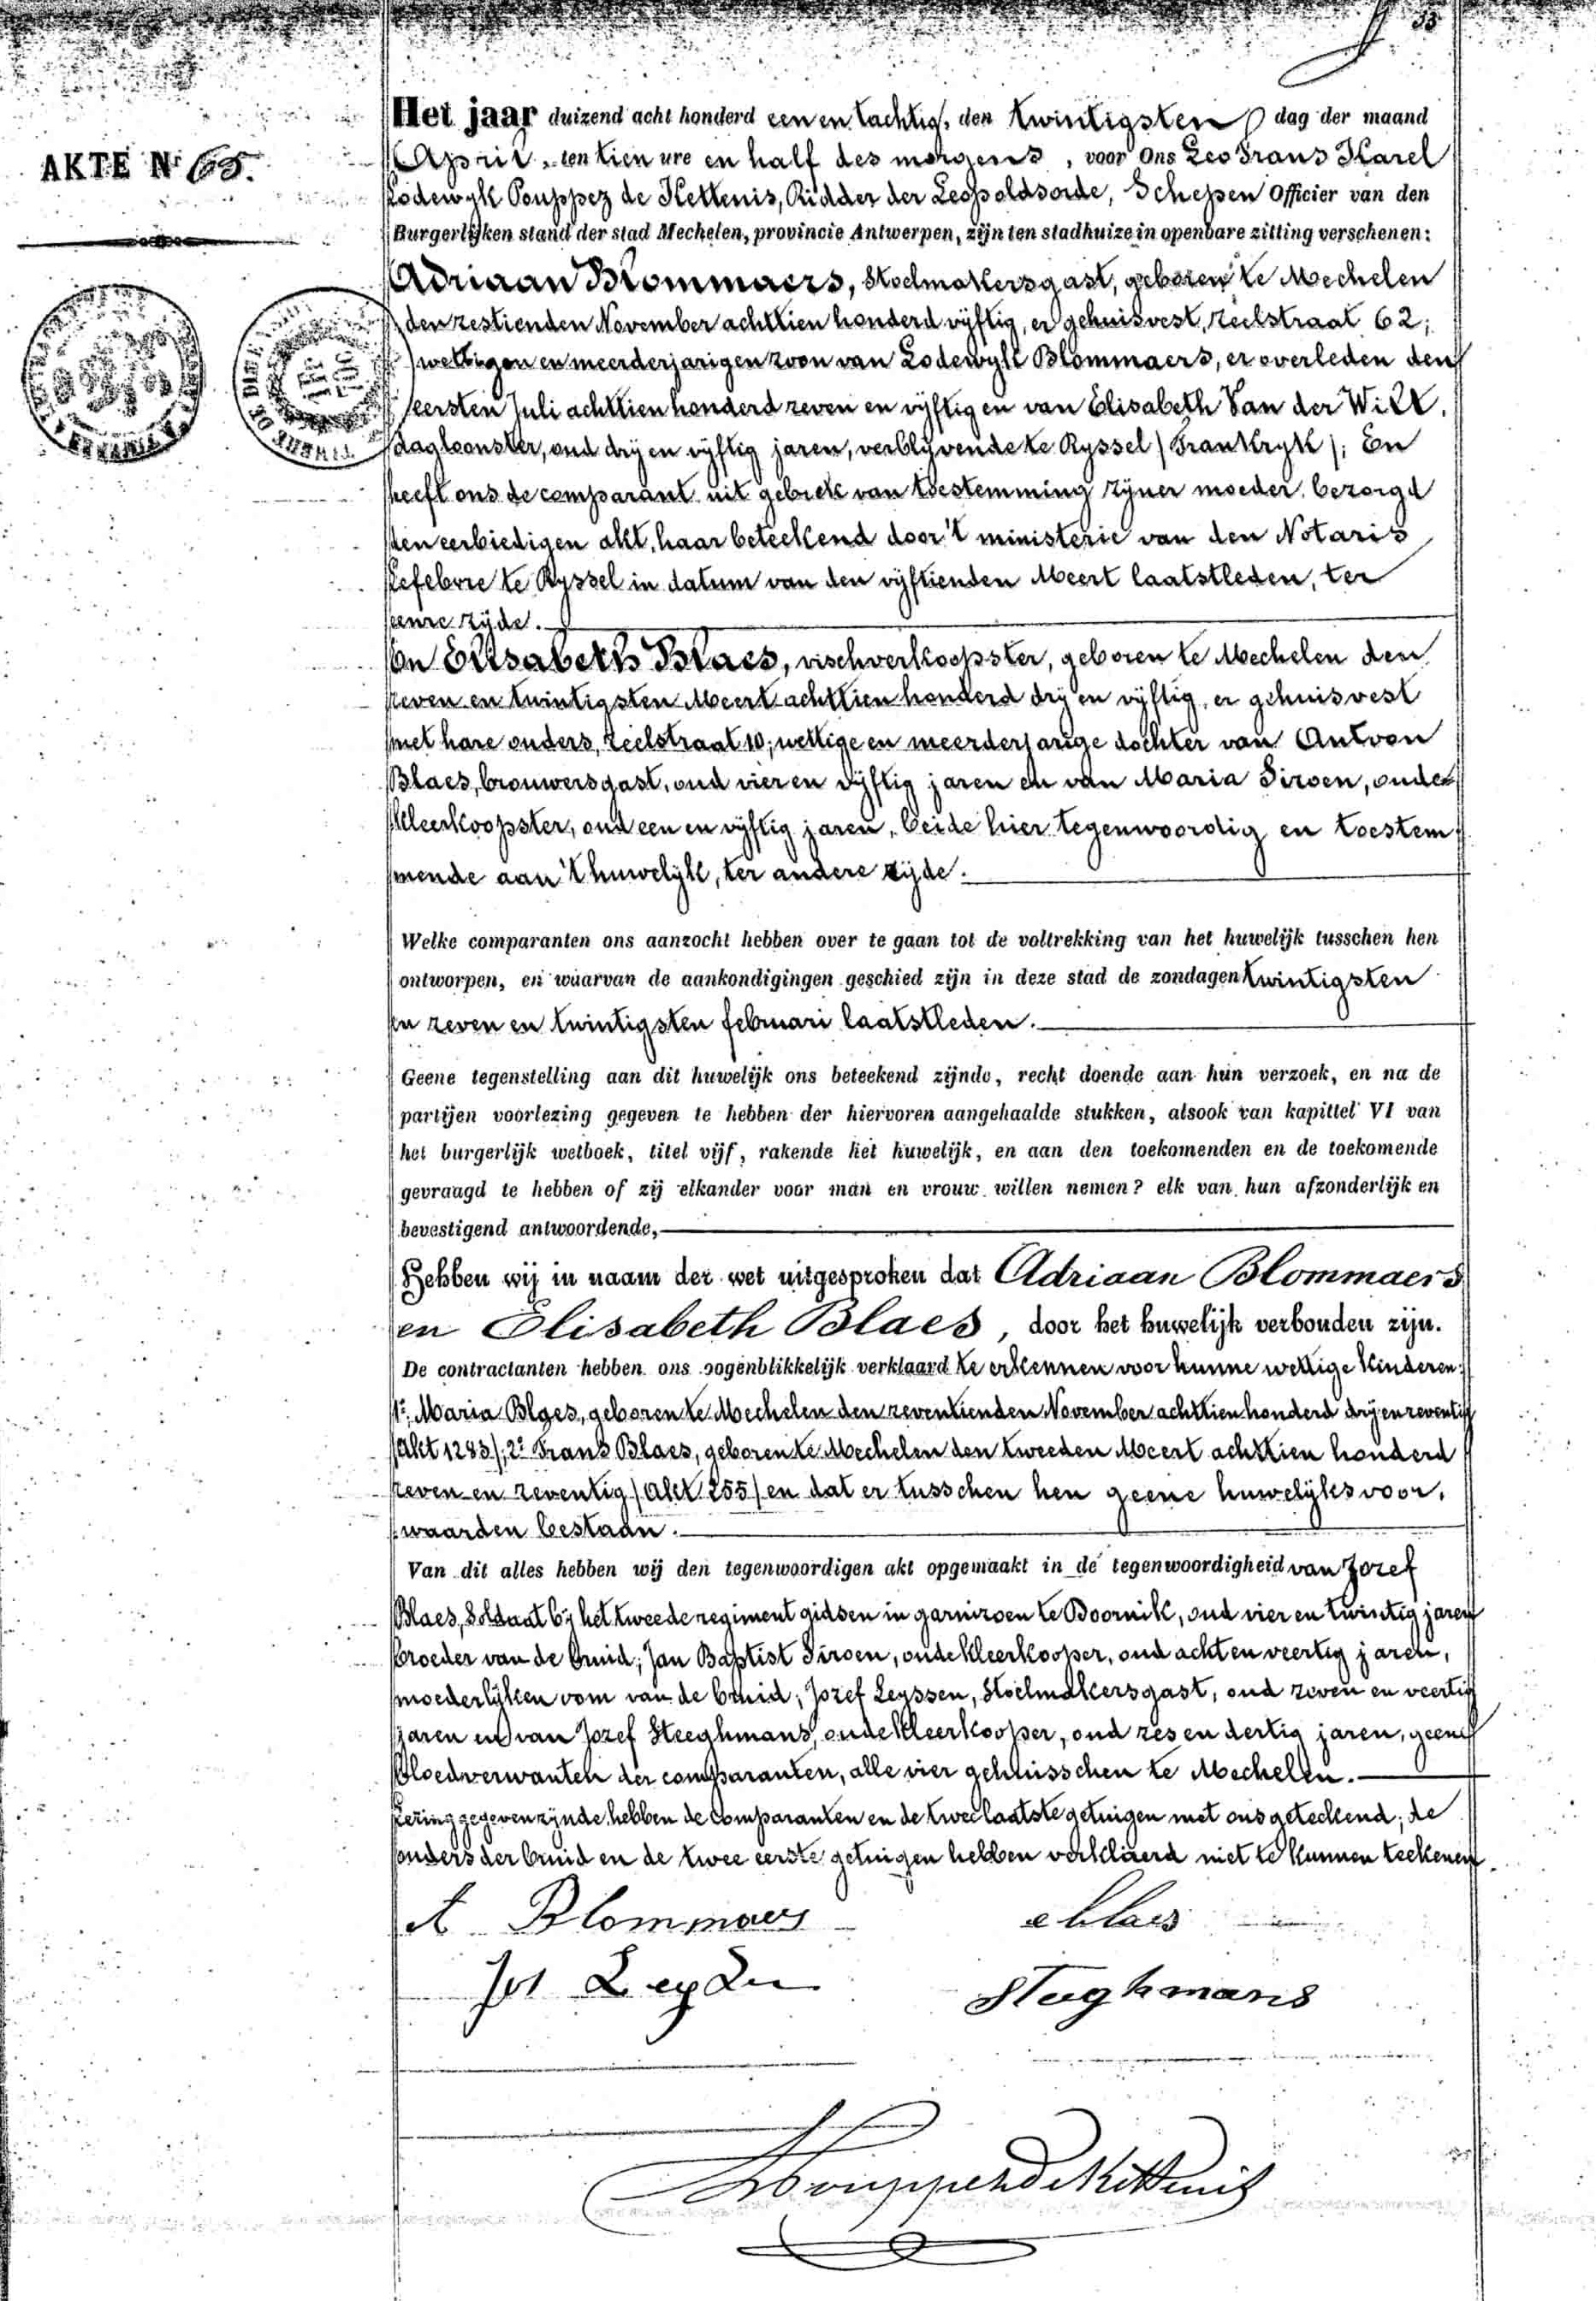 33
AKTE Nr 65.
Het jaar duizend acht honderd een en tachtig, den twintigsten dag der maand
April, ten tien ure en half des morgens, voor Ons Leo Frans Karel
Lodewyk Pouppez de Kettenis, Ridder der Leopoldsorde, Schepen Officier van den
Burgerlijken stand der stad Mechelen, provincie Antwerpen, zijn ten stadhuize in openbare zitting verschenen:
Adriaan Blommaers, Stoelmakersgast, geboren te Mechelen
den zestienden November achttien honderd vyftig, er gehuisvest, Zeelstraat 62;
wettigen en meerderjarigen zoon van Lodewyk Blommaers, er overleden den
eersten Juli achttien honderd zeven en vyftig en van Elisabeth Van der Wilt,
dagloonster, oud dry en vyftig jaren, verblyvende te Ryssel / Frankryk /; En
heeft ons de comparant uit gebrek van toestemming zyner moeder, bezorgd
den eerbiedigen akt, haar beteekend door 't ministerie van den Notaris
Lefebvre te Ryssel in datum van den vyftienden Meert laatstleden, ter
eenre zyde.
En Elisabeth Blaes, vischverkoopster, geboren te Mechelen den
zeven en twintigsten Meert achttien honderd dry en vyftig, er gehuisvest
met hare ouders, Zeelstraat 10; wettige en meerderjarige dochter van Antoon
Blaes, brouwersgast, oud vier en vyftig jaren en van Maria Siroen, oude
kleerkoopster, oud een en vyftig jaren, beide hier tegenwoordig en toestem
mende aan 't huwelyk, ter andere zyde.
Welke comparanten ons aanzocht hebben over te gaan tot de voltrekking van het huwelijk tusschen hen
ontworpen, en waarvan de aankondigingen geschied zijn in deze stad de zondagen twintigsten
en zeven en twintigsten februari laatstleden.
Geene tegenstelling aan dit huwelijk ons beteekend zijnde, recht doende aan hun verzoek, en na de
partijen voorlezing gegeven te hebben der hiervoren aangehaalde stukken, alsook van kapittel VI van
het burgerlijk wetboek, titel vijf, rakende het huwelijk, en aan den toekomenden en de toekomende
gevraagd te hebben of zij elkander voor man en vrouw willen nemen? elk van hun afzonderlijk en
bevestigend antwoordende,
Hebben wij in naam der wet uitgesproken dat Adriaan Blommaers
en Elisabeth Blaes, door het huwelijk verbonden zijn.
De contractanten hebben ons oogenblikkelijk verklaard te erkennen voor hunne wettige kinderen:
1° Maria Blaes, geboren te Mechelen den zeventienden November achttien honderd dry en zeventig
/Akt 1283/; 2° Frans Blaes, geboren te Mechelen den tweeden Meert achttien honderd
zeven en zeventig / Akt 255 / en dat er tusschen hen geene huwelyksvoor,
waarden bestaan.
Van dit alles hebben wij den tegenwoordigen akt opgemaakt in de tegenwoordigheid van Jozef
Blaes, Soldaat by het tweede regiment gidsen in garnizoen te Doornik, oud vier en twintig jaren
broeder van de bruid; Jan Baptist Siroen, oude kleerkooper, oud acht en veertig jaren,
moederlyken oom van de bruid; Jozef Leyssen, Stoelmakersgast, oud zeven en veertig
jaren en van Jozef Steeghmans, oude kleerkooper, oud zes en dertig jaren, geene
bloedverwanten der comparanten, alle vier gehuisschen te Mechelen.
Lezing gegeven zynde, hebben de comparanten en de twee laatste getuigen met ons geteekend; de
ouders der bruid en de twee eerste getuigen hebben verklaerd niet te kunnen teekenen.
A Blommaers
e blaes
Jos
Steghmans
Pouppez de Kettenis